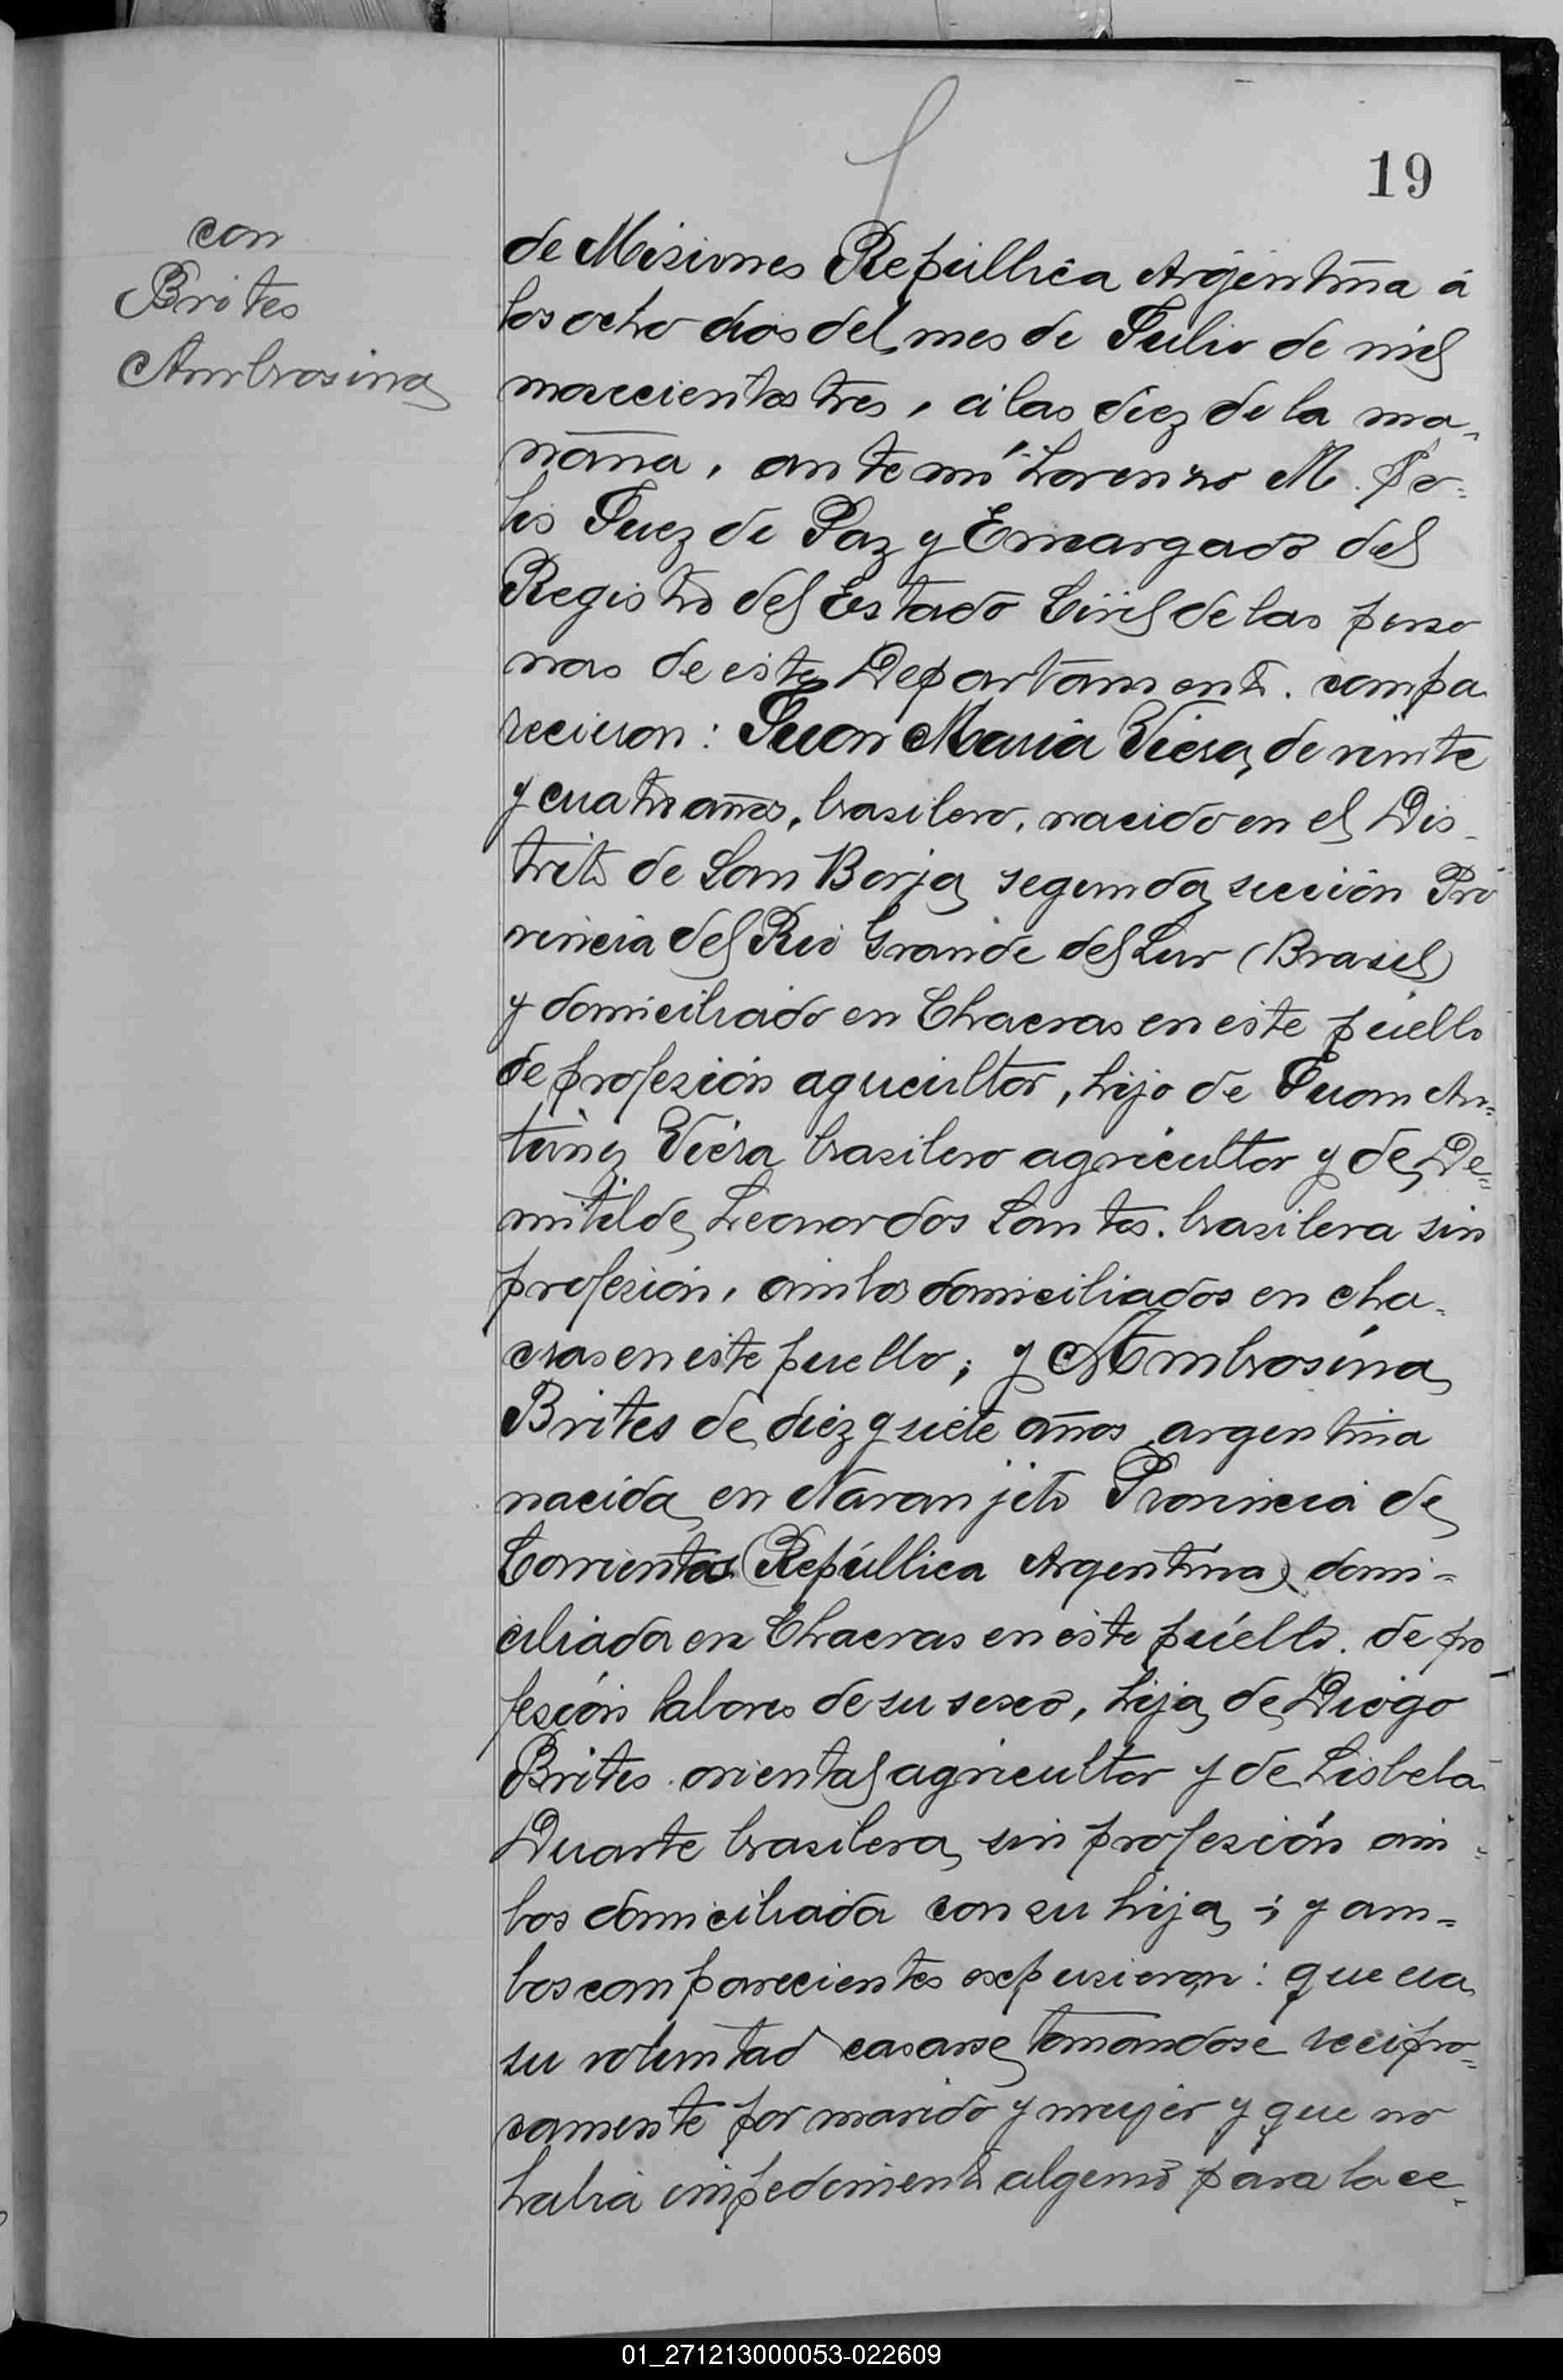 19
con
Brites
Ambrosina
de Misiones República Argentina á
los ocho dias del mes de Julio de mil
novecientos tres, á las diez de la ma-
ñana, ante mi Lorenzo M.
Juez de Paz y Encargado del
Registro del Estado Civil de las perso
nas de este Departamento. compa
recieron: Juan Maria Viera, de veinte
y cuatro años, brasilero, nacido en el Dis-
trito de San Borja segunda sección Pro
vincia del Rio Grande del Sur (Brasil)
y domiciliado en Chacras en este pueblo
de profesión agricultor, hijo de Juan An-
Viera brasilero agricultor y de De-
mitilde Leonor dos Santos. brasilera sin
profesión, ambos domiciliados en cha-
cras en este pueblo; y Ambrosina
Brites de diez y siete años argentina
nacida en Naranjito Provincia de
Corrientes (República Argentina) domi-
ciliada en Chacras en este pueblo. de pro
fesión labores de su sexo, hija de Diogo
Brites oriental agricultor y de Lisbela
Duarte brasilera, sin profesión am-
bos domiciliada con su hija; y am-
bos comparecientes expusieron: que era
su voluntad casarse tomandose recipro-
camente por marido y mujer y que no
habia impedimento alguno para la ce-
01_271213000053-022609